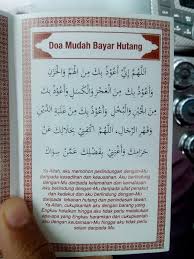 Doa Mudah Bayar Hutang
اَللَّهُمَّ إِنِّيْ أَعُوْذُ بِكَ مِنَ الْهَمِّ وَالْحَزَنِ
وَأَعُوْذُ بِكَ مِنَ الْعَجْزِ وَالْكَسَلِ وَأَعُوْذُ بِكَ
مِنَ الْجُبْنِ وَالْبُخْلِ وَأَعُوْذُ بِكَ مِنْ غَلَبَةِ الدَّيْنِ
وَقَهْرِ الرِّجَالِ، اَللَّهُمَّ اكْفِنِيْ بِحَلَالِكَ عَنْ
حَرَامِكَ وَأَغْنِنِيْ بِفَضْلِكَ عَمَّنْ سِوَاكَ
Ya Allah, aku memohon perlindungan dengan-Mu
daripada kesedihan dan kedukaan. Aku berlindung
dengan-Mu daripada kelemahan dan kemalasan.
Aku berlindung dengan-Mu daripada sifat penakut
dan kedekut dan aku berlindung dengan-Mu
daripada tekanan hutang dan penindasan lawan.
Ya Allah, cukupkanlah aku dengan barang yang
Engkau halalkan hingga aku tidak perlu kepada
apa yang Engkau haramkan dan cukupkanlah
aku dengan limpah kurniaan daripada-Mu dan
selain-Mu hingga aku tidak perlu
selain daripada Mu.